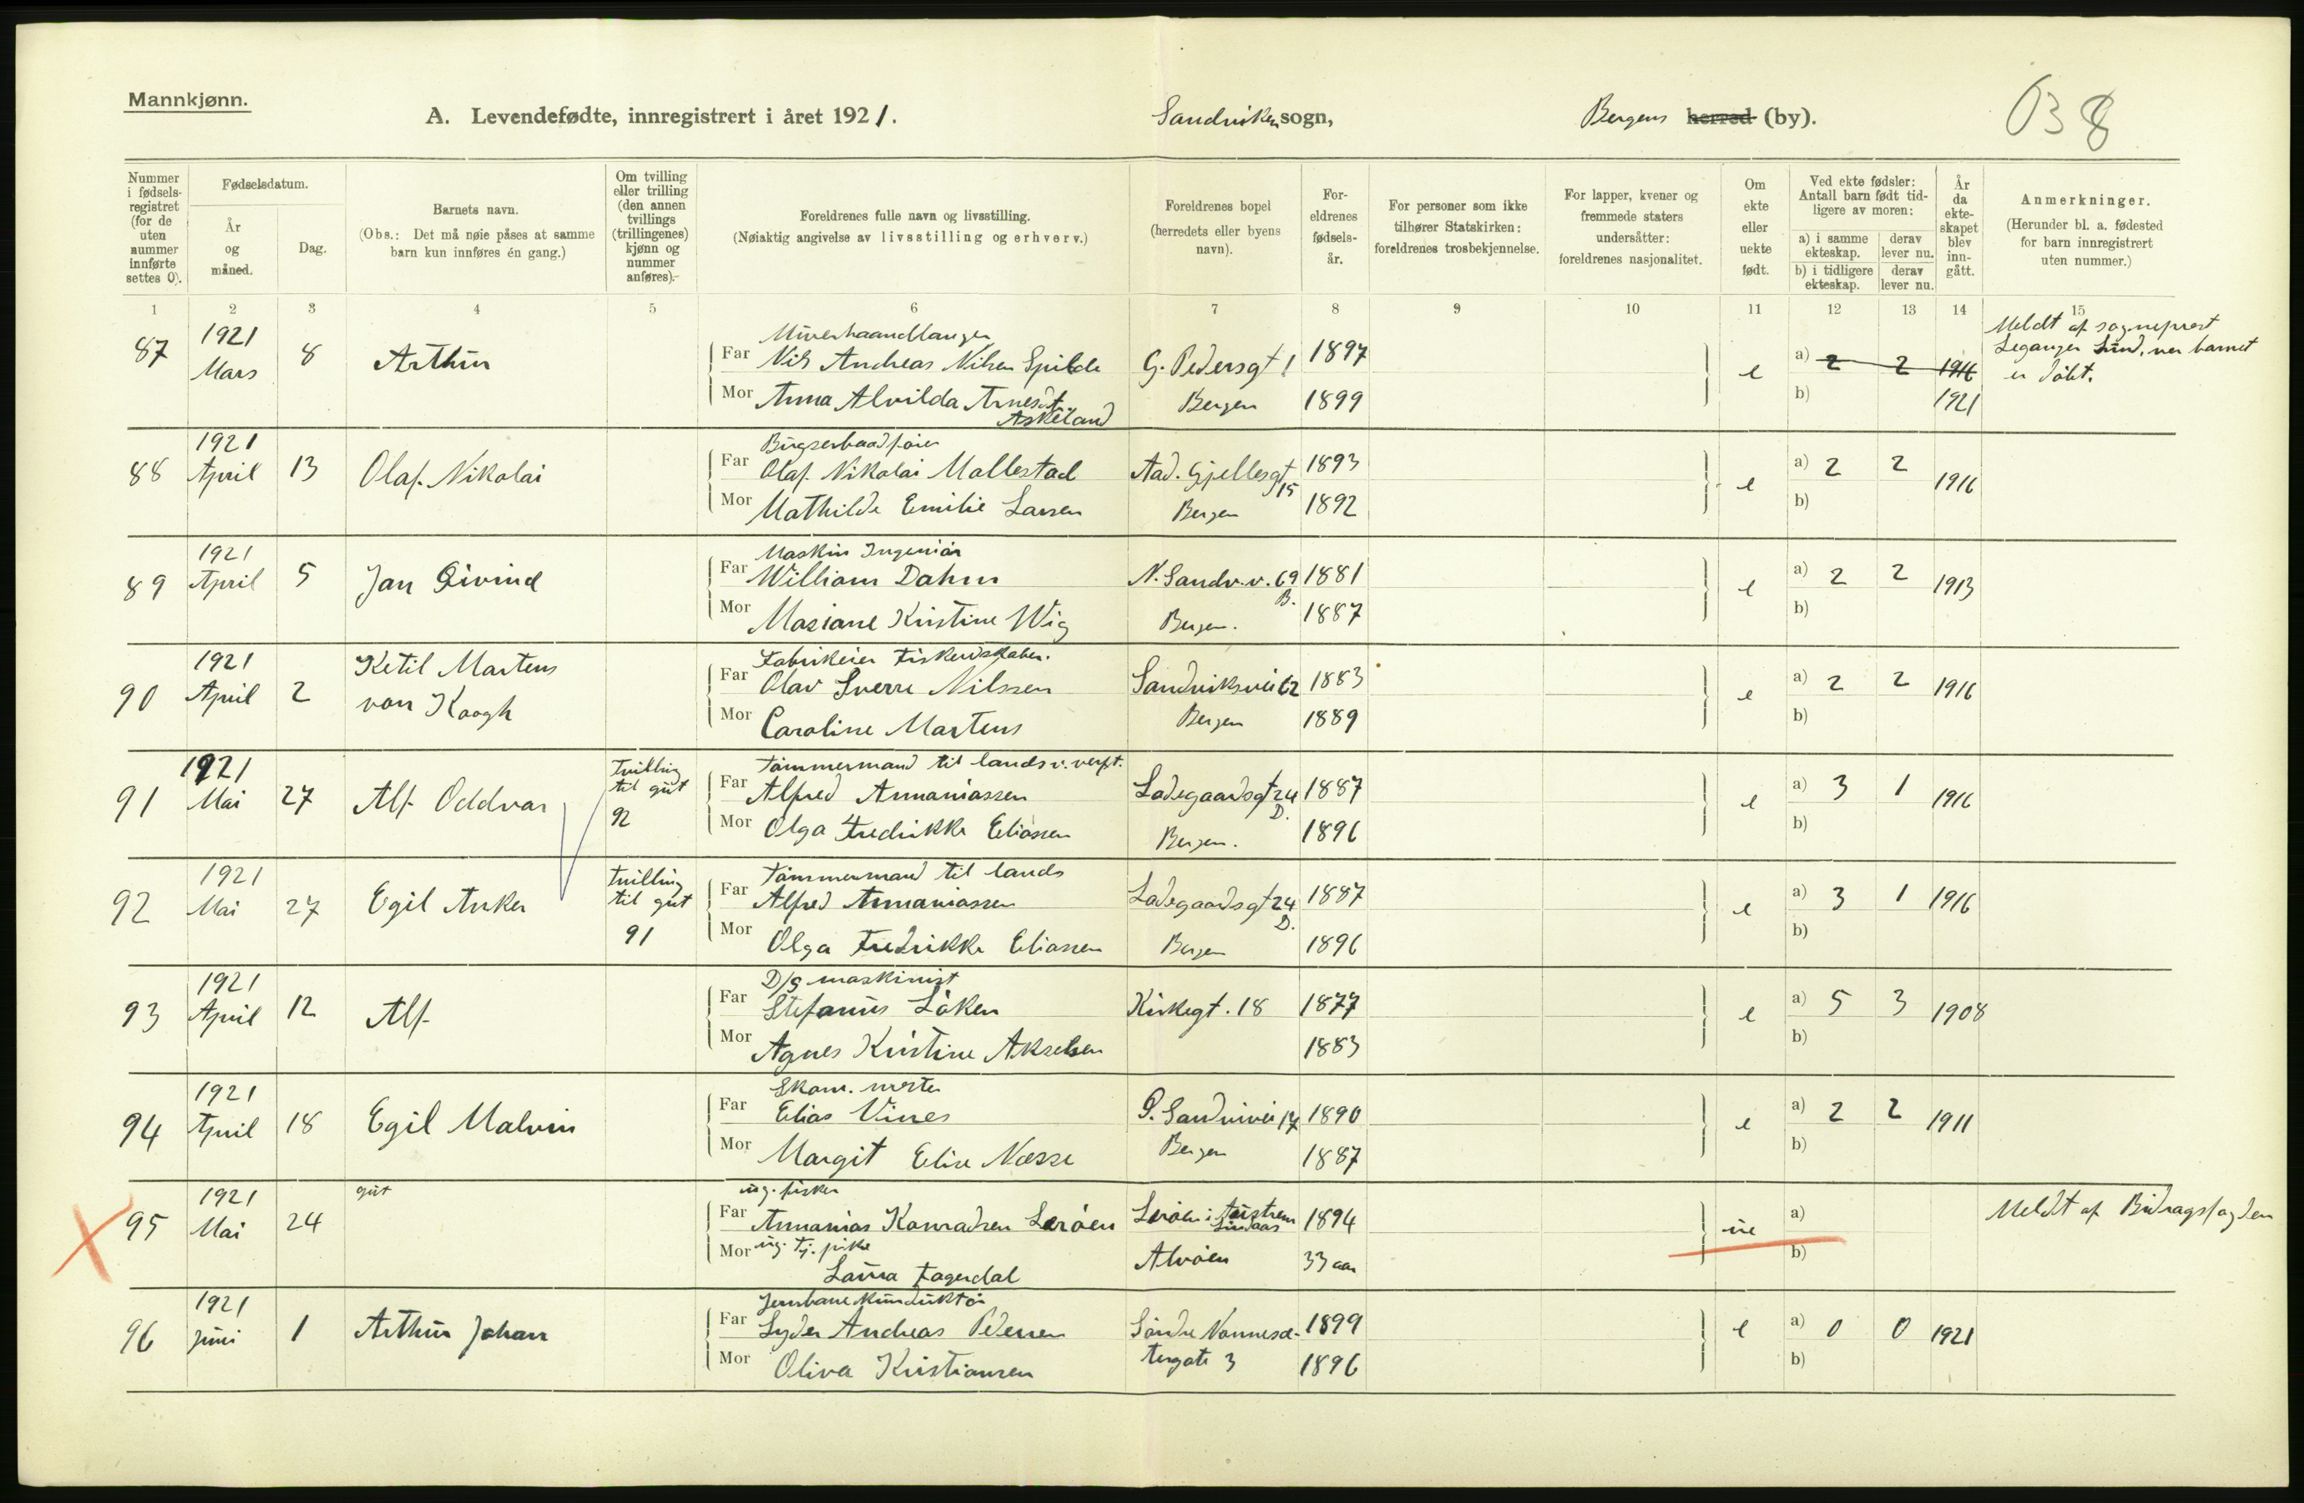 Mannkjønn.
A. Levendefødte, innregistrert i året 1921.
Sandviken sogn,
Bergens herred (by).
638
Nummer i fødsels-registret (for de uten nummer innførte settes 0).
Fødselsdatum.
År og måned.
Dag.
Barnets navn.
(Obs.: Det må nøie påses at samme barn kun innføres én gang.)
Om tvilling eller trilling (den annen tvillings (trillingenes) kjønn og nummer anføres).
Foreldrenes fulle navn og livsstilling.
(Nøiaktig angivelse av livsstilling og erhverv.)
Foreldrenes bopel (herredets eller byens navn).
For-eldrenes fødsels-år.
For personer som ikke tilhører Statskirken: foreldrenes trosbekjennelse.
For lapper, kvener og fremmede staters undersåtter: foreldrenes nasjonalitet.
Om ekte eller uekte født.
Ved ekte fødsler: Antall barn født tid-ligere av moren:
a) i samme ekteskap.
derav lever nu.
b) i tidligere ekteskap.
derav lever nu.
År da ekte-skapet blev inn-gått.
Anmerkninger.
(Herunder bl. a. fødested for barn innregistrert uten nummer.)
1 2 3 4 5 6 7 8 9 10 11 12 13 14 15
87 1921 Mars 8 Arthur
Murerhaandlanger
Far Nils Andreas Nilsen Spilde G. Pedersgt 1 1897
Mor Anna Alvilda Arnesdt. Askeland Bergen 1899
e a) 2 2 1916
b) 1921
Meldt af sogneprest
Leganger Lund, ver barnet
er döbt.
88 1921 April 13 Olaf Nikolai
Bugserbaadfører
Far Olaf Nikolai Mollestad Aad. Gjellesgt 15 1893
Mor Mathilde Emilie Larsen Bergen 1892
e a) 2 2 1916
b)
89 1921 April 5 Jan Eivind
Maskin Ingeniör
Far William Dahm N. Sandv. v. 69 B. 1881
Mor Mariane Kristine Wig Bergen. 1887
e a) 2 2 1913
b)
90 1921 April 2 Ketil Martens van Koogh
Fabrikeier Fiskeredskaber.
Far Olav Sverre Nilssen Sandviksvei 62 1883
Mor Caroline Martens Bergen 1889
e a) 2 2 1916
b)
91 1921 Mai 27 Alf Oddvar
Tvilling til gut 92
Tömmermand til lands v. verft.
Far Alfred Annaniassen Ladegaardsgt 24 D. 1887
Mor Olga Fredrikke Eliassen Bergen. 1896
e a) 3 1 1916
b)
92 1921 Mai 27 Egil Anker
Tvilling til gut 91
Tömmermand til lands
Far Alfred Annaniassen Ladegaardsgt 24 D. 1887
Mor Olga Fredrikke Eliassen Bergen 1896
e a) 3 1 1916
b)
93 1921 April 12 Alf
D/S maskinist
Far Stefanus Löken Kirkegt. 18 1877
Mor Agnes Kristine Akselsen 1883
e a) 5 3 1908
b)
94 1921 April 18 Egil Malvin
Skom. mester
Far Elias Vines Sandvivei 17 1890
Mor Margit Elise Næsse Bergen 1887
e a) 2 2 1911
b)
95 1921 Mai 24 gut
ug. fisker
Far Annanias Konradsen Leröen Leröen i Austrem Lindaas 1894
Mor ug. tj. pike Alvöen 33 aar
Laura Fagerdal
ue a)
b)
Meldt af Bidragsfogden
96 1921 Juni 1 Arthur Johan
Jernbanekunduktör
Far Lyder Andreas Pedersen Söndre 1899
Mor Oliva Kristiansen 3 1896
e a) 0 0 1921
b)